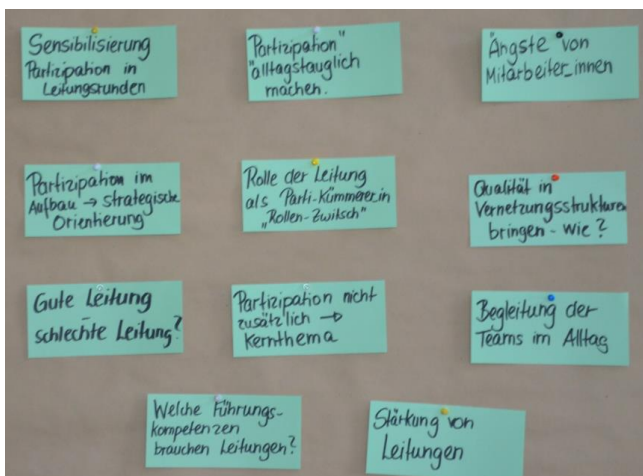 Sensibilisierung
Partizipation in
Leitungsrunden
Partizipation"
"alltagstauglich
machen.
Ängste von
Mitarbeiter_innen
Partizipation im
Aufbau → strategische
Orientierung
Rolle der Leitung
als Parti-Kümmerer_in
„Rollen-Zwitsch"
Qualität in
Vernetzungsstrukturen
bringen - wie?
Gute Leitung
schlechte Leitung?
Partizipation nicht
zusätzlich →
Kernthema
Begleitung der
Teams im Alltag
Welche Führungs-
kompetenzen
brauchen Leitungen?
Stärkung von
Leitungen